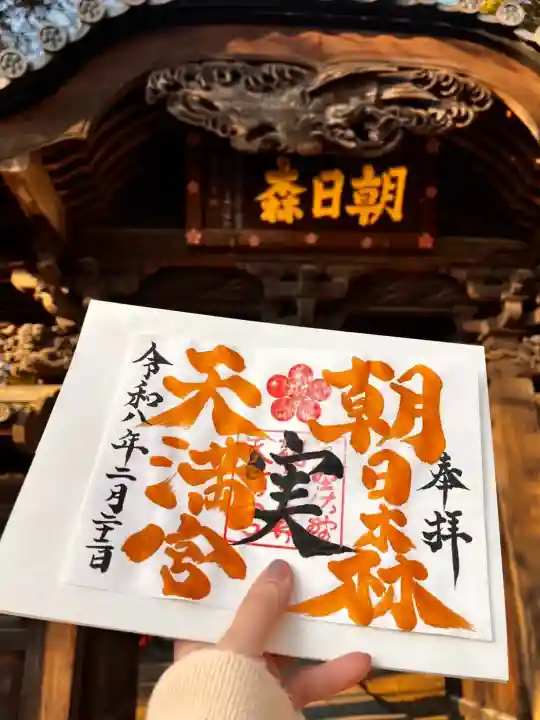 朝日森
奉拝
朝日森
実
天満宮
令和八年二月